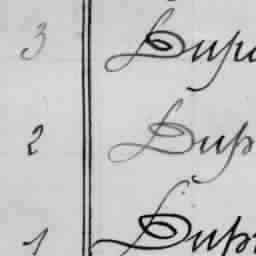 3 Dupu
2 Dup
1 Dup